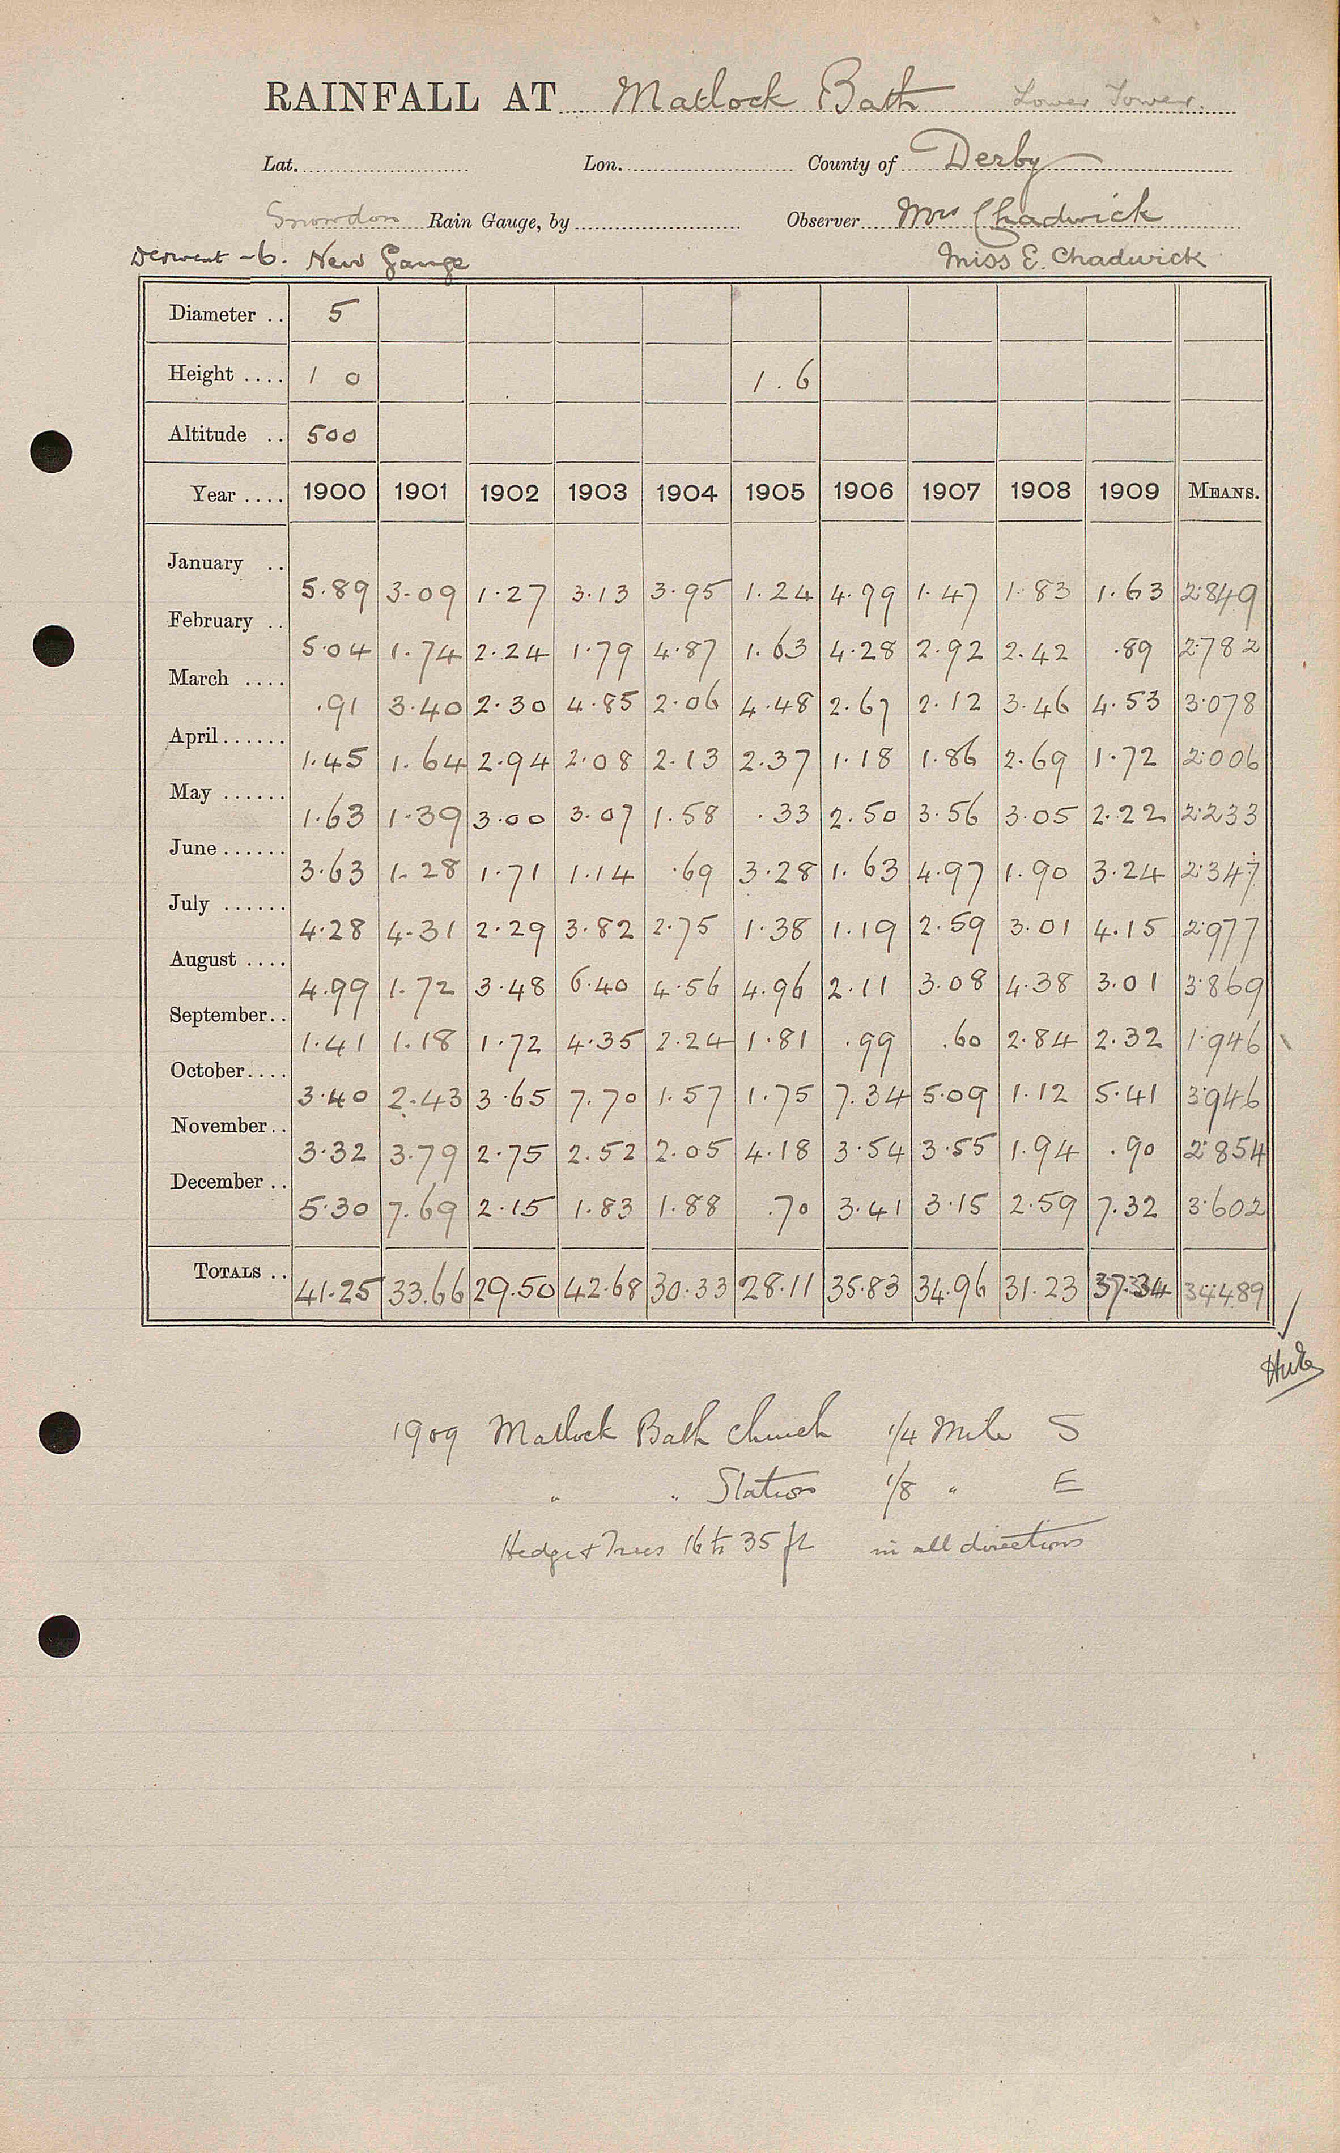 RAINFALL AT Matlock Bath Lower Tower.
Lat. Lon. County of Derby
Snowdon Rain Gauge, by Observer Mrs Chadwick
Derwent - 6. New Gauge Miss E. Chadwick
Diameter .. 5
Height .... 1 0 1.6
Altitude .. 500
Year .... 1900 1901 1902 1903 1904 1905 1906 1907 1908 1909 MEANS.
January .. 5.89 3.09 1.27 3.13 3.95 1.24 4.99 1.47 1.83 1.63 2.849
February .. 5.04 1.74 2.24 1.79 4.87 1.63 4.28 2.92 2.42 .89 2.782
March .... .91 3.40 2.30 4.85 2.06 4.48 2.67 2.12 3.46 4.53 3.078
April...... 1.45 1.64 2.94 2.08 2.13 2.37 1.18 1.86 2.69 1.72 2.006
May ...... 1.63 1.39 3.00 3.07 1.58 .33 2.50 3.56 3.05 2.22 2.233
June ...... 3.63 1.28 1.71 1.14 .69 3.28 1.63 4.97 1.90 3.24 2.347
July ...... 4.28 4.31 2.29 3.82 2.75 1.38 1.19 2.59 3.01 4.15 2.977
August .... 4.99 1.72 3.48 6.40 4.56 4.96 2.11 3.08 4.38 3.01 3.869
September.. 1.41 1.18 1.72 4.35 2.24 1.81 .99 .60 2.84 2.32 1.946
October.... 3.40 2.43 3.65 7.70 1.57 1.75 7.34 5.09 1.12 5.41 3.946
November.. 3.32 3.79 2.75 2.52 2.05 4.18 3.54 3.55 1.94 .90 2.854
December .. 5.30 7.69 2.15 1.83 1.88 .70 3.41 3.15 2.59 7.32 3.602
TOTALS .. 41.25 33.66 29.50 42.68 30.33 28.11 35.83 34.96 31.23 37.34 34.489
1909 Matlock Bath Church 1/4 Mile S
" " Station 1/8 " E
Hedge & Trees 16 to 35 ft in all directions